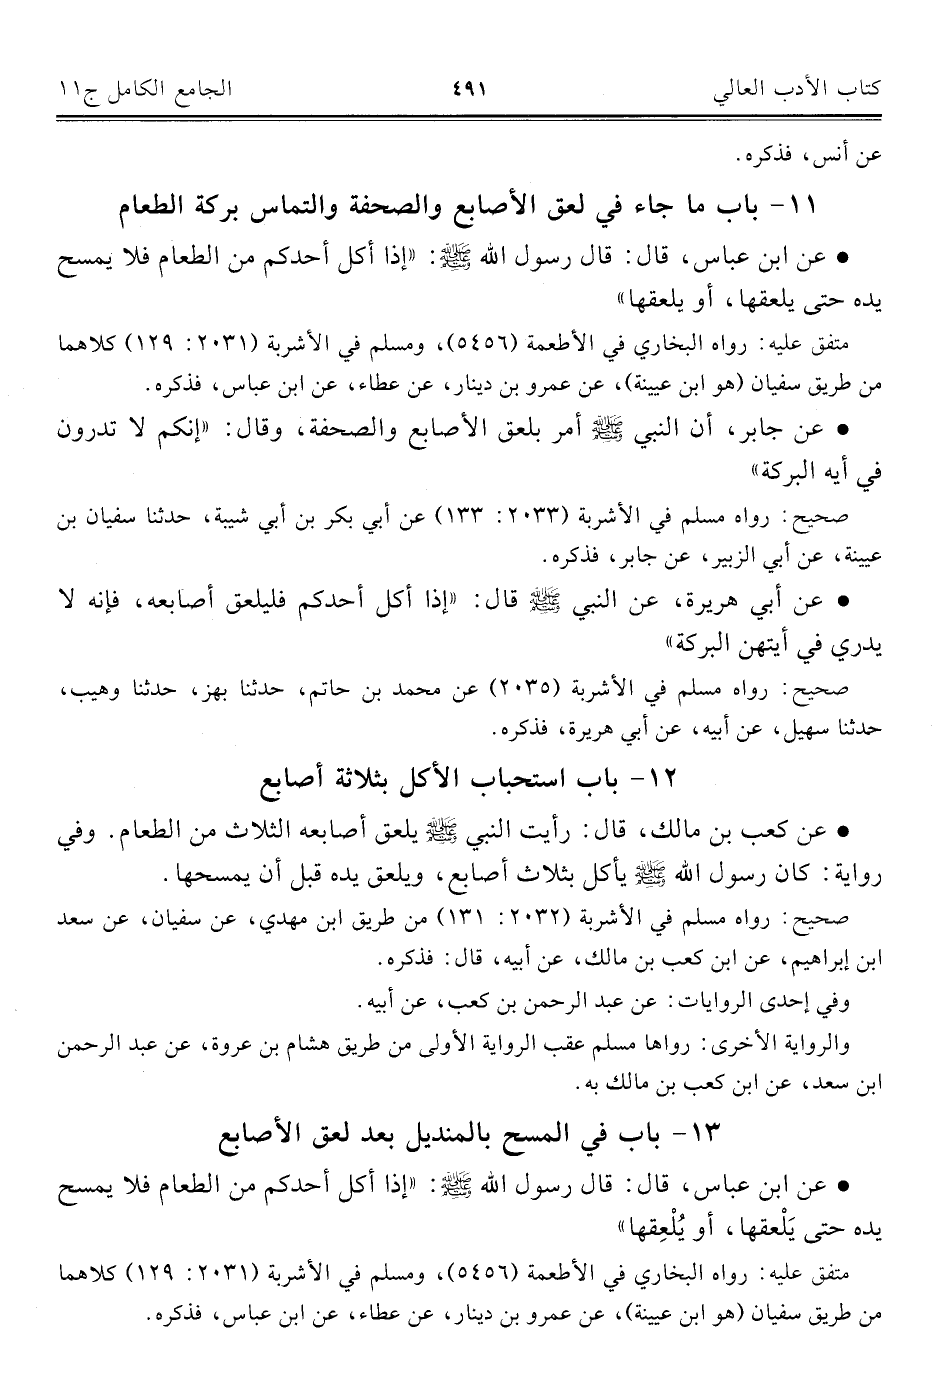 كتاب الأدب العالي ٤٩١ الجامع الكامل ج١١
عن أنس، فذكره.
١١- باب ما جاء في لعق الأصابع والصحفة والتماس بركة الطعام
• عن ابن عباس، قال: قال رسول الله ﷺ: «إذا أكل أحدكم من الطعام فلا يمسح
يده حتى يلعقها، أو يلعقها»
متفق عليه: رواه البخاري في الأطعمة (٥٤٥٦)، ومسلم في الأشربة (٢٠٣١: ١٢٩) كلاهما
من طريق سفيان (هو ابن عيينة)، عن عمرو بن دينار، عن عطاء، عن ابن عباس، فذكره.
• عن جابر، أن النبي ﷺ أمر بلعق الأصابع والصحفة، وقال: «إنكم لا تدرون
في أيه البركة»
صحيح: رواه مسلم في الأشربة (٢٠٣٣: ١٣٣) عن أبي بكر بن أبي شيبة، حدثنا سفيان بن
عيينة، عن أبي الزبير، عن جابر، فذكره.
• عن أبي هريرة، عن النبي ﷺ قال: «إذا أكل أحدكم فليلعق أصابعه، فإنه لا
يدري في أيتهن البركة»
صحيح: رواه مسلم في الأشربة (٢٠٣٥) عن محمد بن حاتم، حدثنا بهز، حدثنا وهيب،
حدثنا سهيل، عن أبيه، عن أبي هريرة، فذكره.
١٢- باب استحباب الأكل بثلاثة أصابع
• عن كعب بن مالك، قال: رأيت النبي ﷺ يلعق أصابعه الثلاث من الطعام. وفي
رواية: كان رسول الله ﷺ يأكل بثلاث أصابع، ويلعق يده قبل أن يمسحها.
صحيح: رواه مسلم في الأشربة (٢٠٣٢: ١٣١) من طريق ابن مهدي، عن سفيان، عن سعد
ابن إبراهيم، عن ابن كعب بن مالك، عن أبيه، قال: فذكره.
وفي إحدى الروايات: عن عبد الرحمن بن كعب، عن أبيه.
والرواية الأخرى: رواها مسلم عقب الرواية الأولى من طريق هشام بن عروة، عن عبد الرحمن
ابن سعد، عن ابن كعب بن مالك به.
١٣- باب في المسح بالمنديل بعد لعق الأصابع
• عن ابن عباس، قال: قال رسول الله ﷺ: «إذا أكل أحدكم من الطعام فلا يمسح
يده حتى يَلْعقها، أو يُلْعِقها»
متفق عليه: رواه البخاري في الأطعمة (٥٤٥٦)، ومسلم في الأشربة (٢٠٣١: ١٢٩) كلاهما
من طريق سفيان (هو ابن عيينة)، عن عمرو بن دينار، عن عطاء، عن ابن عباس، فذكره.